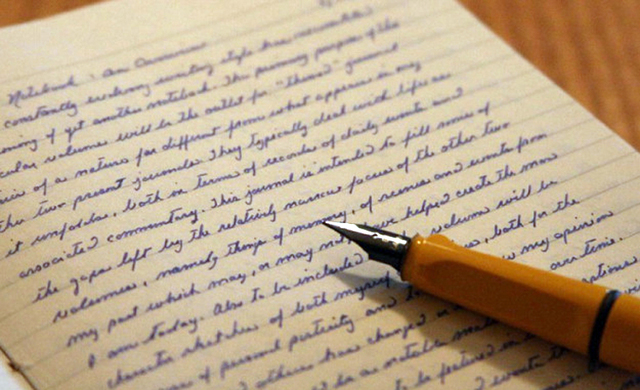 Notebook: An Overview
constantly evolving writing style has
of yet another notebook. The primary purpose of the
volume will be the outlet for "themed" journal
of a nature far different from what appears in my
other two present journals. They typically deal with life as
it unfolds, both in terms of recorder of daily events and
associated commentary. This journal is intended to fill some of
the gaps left by the relatively narrow focus of the other two
volumes, namely those of memory, of scenes and events from
my past which may, or may not, have helped create the man
I am today. Also to be included volume will be
character sketches of both myself , both for the
of personal posterity and my opinion
others have changed or over time.
to as notable
to be featured in